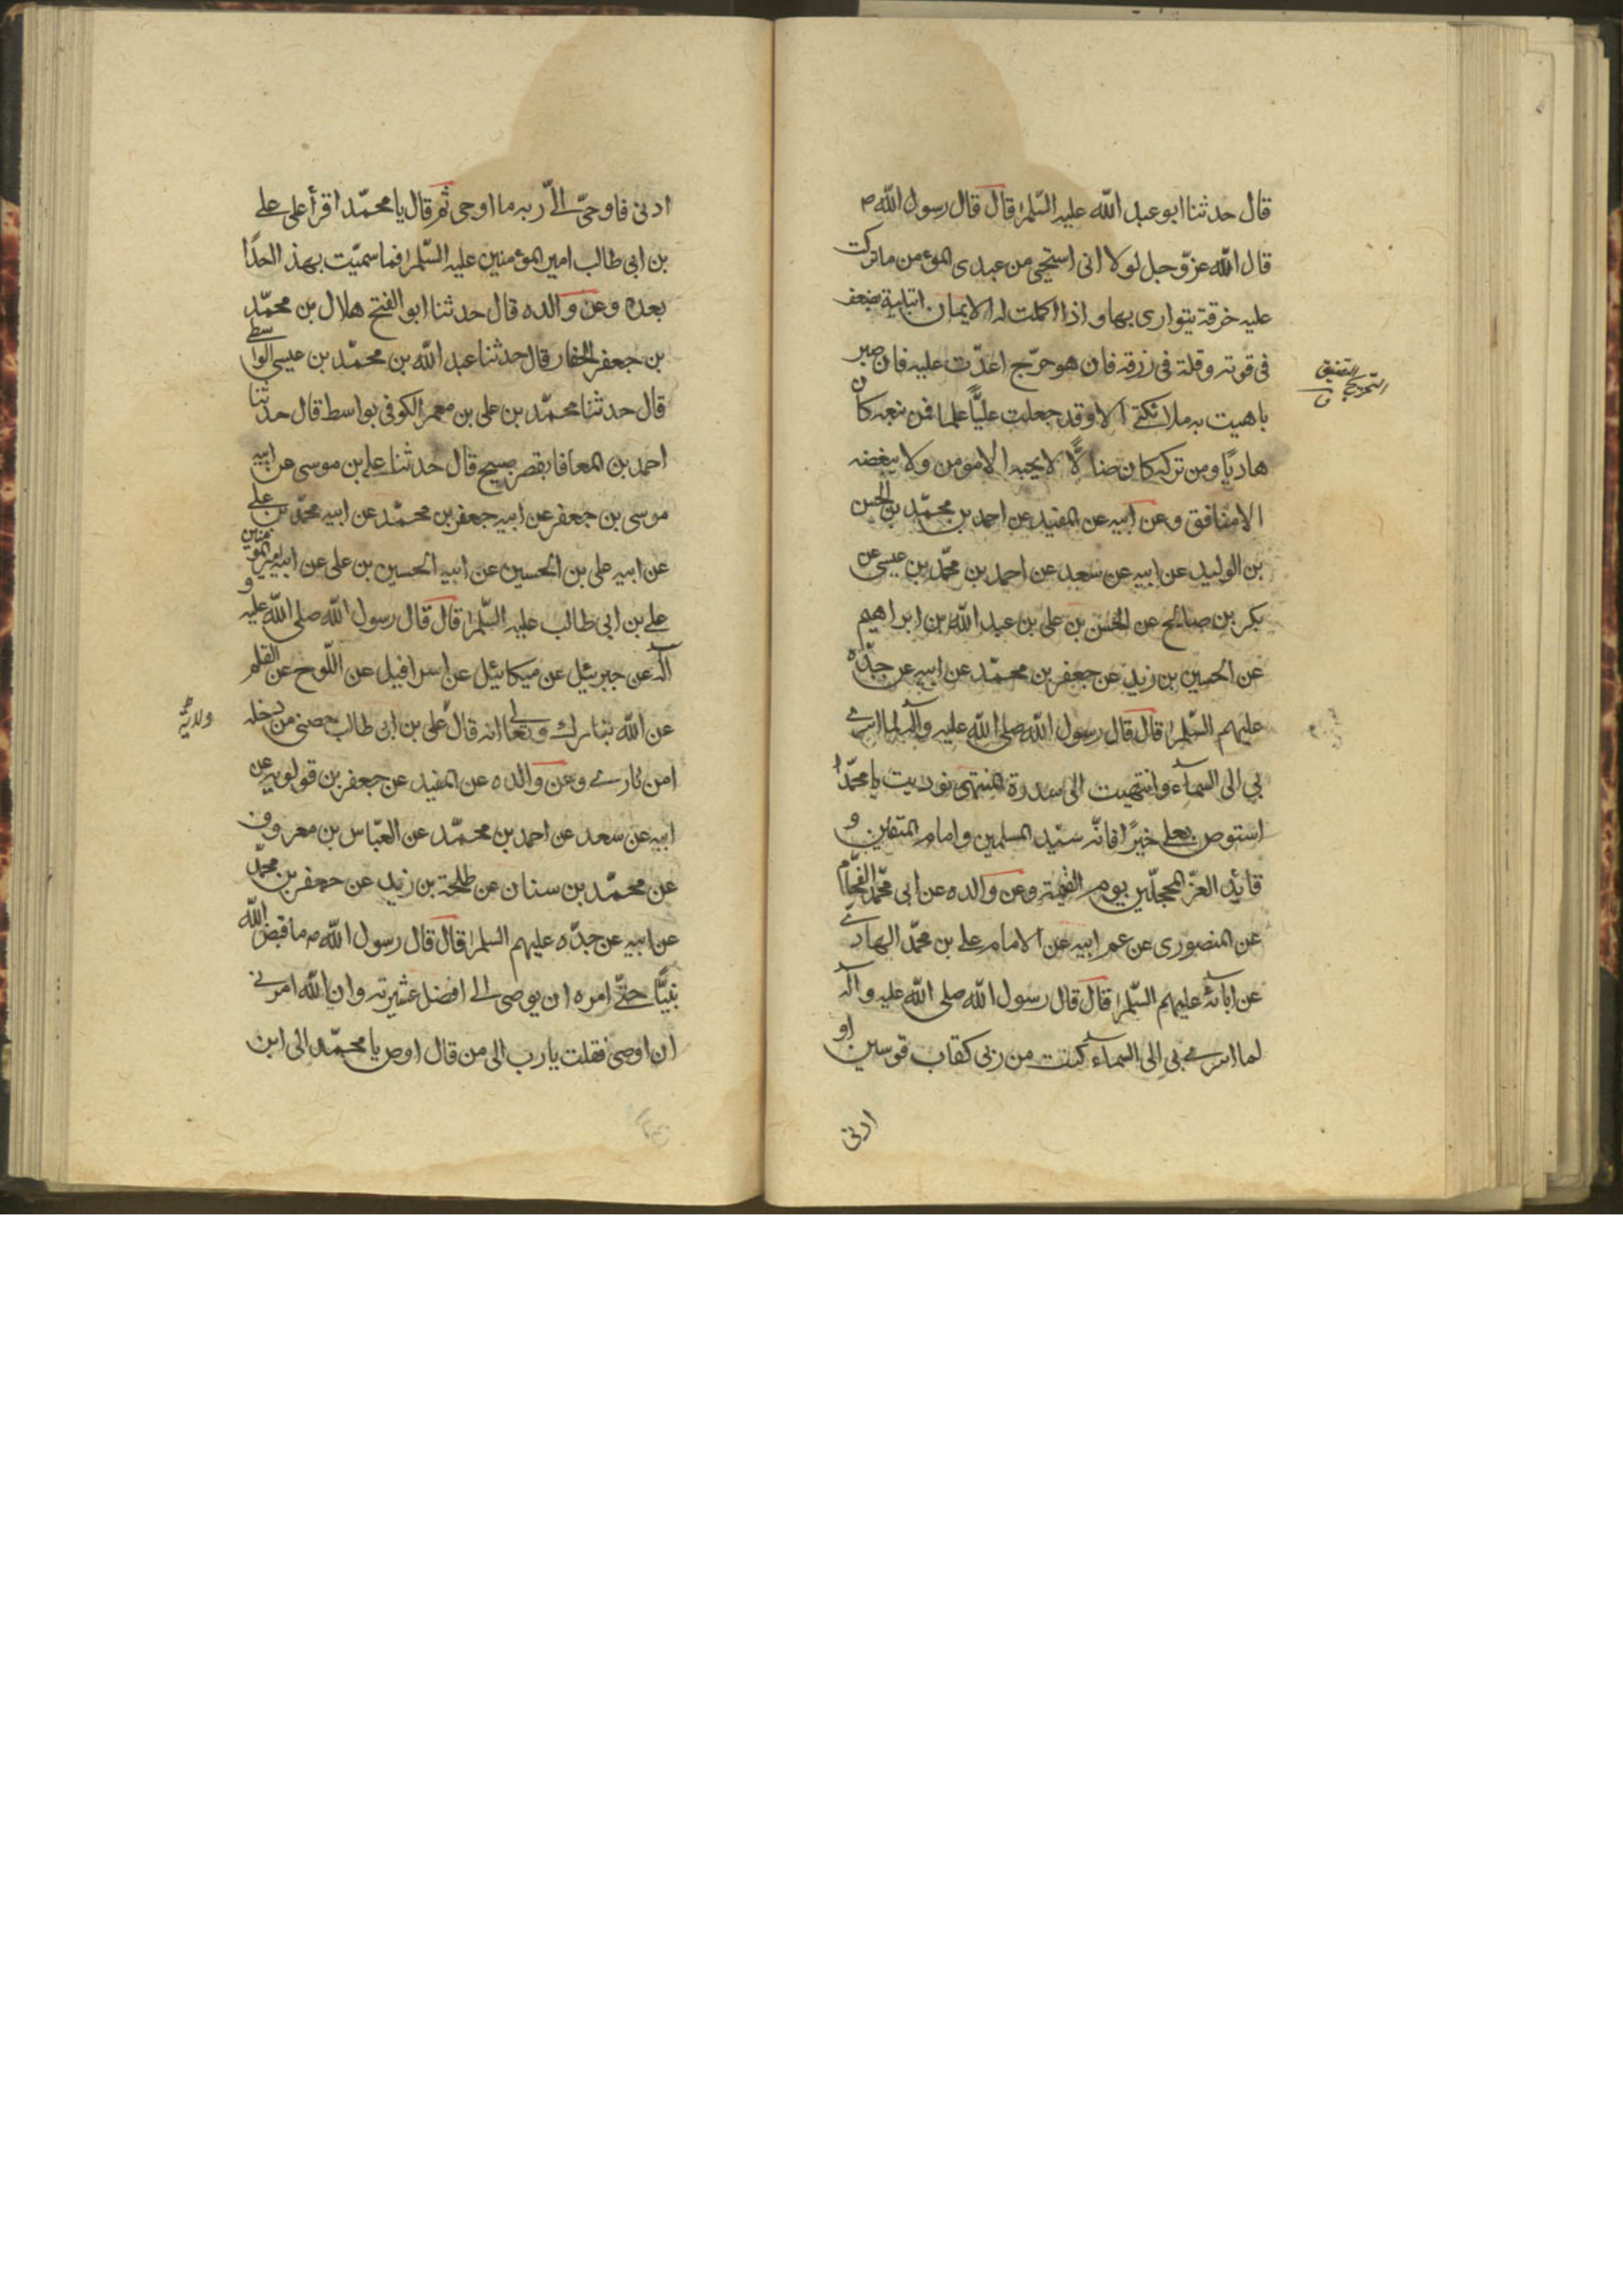 قال حدثنا ابو عبد الله عليه السّلم قال قال رسول الله ص
قال الله عزّ وجل لولا انى استحيى من عبدى المؤمن ما تركت
عليه خرقة يتوارى بها و اذا اكملت له الايمان ابتليته بضعف
فى قوته وقلة فى رزقه فان هو حرّج اعدّت عليه فان صبر
باهيت به ملائكتى الا و قد جعلت عليًّا علما فمن تبعه كان
هاديًا ومن تركه كان ضالًّا لا يحبه الا مؤمن ولا يبغضه
الا منافق وعن ابيه عن المفيد عن احمد بن محمّد بن الحسن
بن الوليد عن ابيه عن سعد عن احمد بن محمّد بن عيسى عن
بكر بن صالح عن الحسن بن على بن عبد الله بن ابراهيم
عن الحسين بن زيد عن جعفر بن محمّد عن ابيه عن جدّه
عليهم السّلم قال قال رسول الله صلى الله عليه وآله لما اسرى
بي الى السمآء وانتهيت الى سدرة المنتهى نوديت يا محمّد
استوص بعلى خيرًا فانّه سيّد المسلمين و امام المتقين و
قائد الغرّ المحجلّين يوم القيمة وعن والده عن ابى محمّد الفحّام
عن المنصورى عن عم ابيه عن الامام على بن محمّد الهادى
عن ابائه عليهم السّلم قال قال رسول الله صلى الله عليه وآله
لما اسرى بي الى السمآء كنت من ربى كقاب قوسين او
ادنى
التضيق
التحريج
ق
ادنى فاوحىّ الىّ ربه ما اوحى ثم قال يا محمّد اقرأ على على
بن ابى طالب امير المؤمنين عليه السّلم فما سميّت بهذ احدًا
بعده وعن والده قال حدثنا ابو الفتح هلال بن محمّد
بن جعفر الحفار قال حدثنا عبد الله بن محمّد بن عيسى الواسطى
قال حدثنا محمّد بن على بن معمر الكوفى بواسط قال حدثنا
احمد بن المعافا بقصر صبيح قال حدثنا على بن موسى عن ابيه
موسى بن جعفر عن ابيه جعفر بن محمّد عن ابيه محمّد بن على
عن ابيه على بن الحسين عن ابيه الحسين بن على عن ابيه امير المؤمنين
على بن ابى طالب عليه السّلم قال قال رسول الله صلى الله عليه و
آله عن جبرئيل عن ميكائيل عن اسرافيل عن اللّوح عن القلم
عن الله تبارك وتعالى انه قال على بن ابى طالب حصنى من دخله
امن نارى وعن والده عن المفيد عن جعفر بن قولويه عن
ابيه عن سعد عن احمد بن محمّد عن العبّاس بن معروف
عن محمّد بن سنان عن طلحة بن زيد عن جعفر بن محمّد
عن ابيه عن جدّه عليهم السلم قال قال رسول الله ص ما قبض الله
نبيًّا حتّى امره ان يوصى الى افضل عشيرته وان الله امرنى
ان اوصى فقلت يا رب الى من قال اوص يا محمّد الى ابن